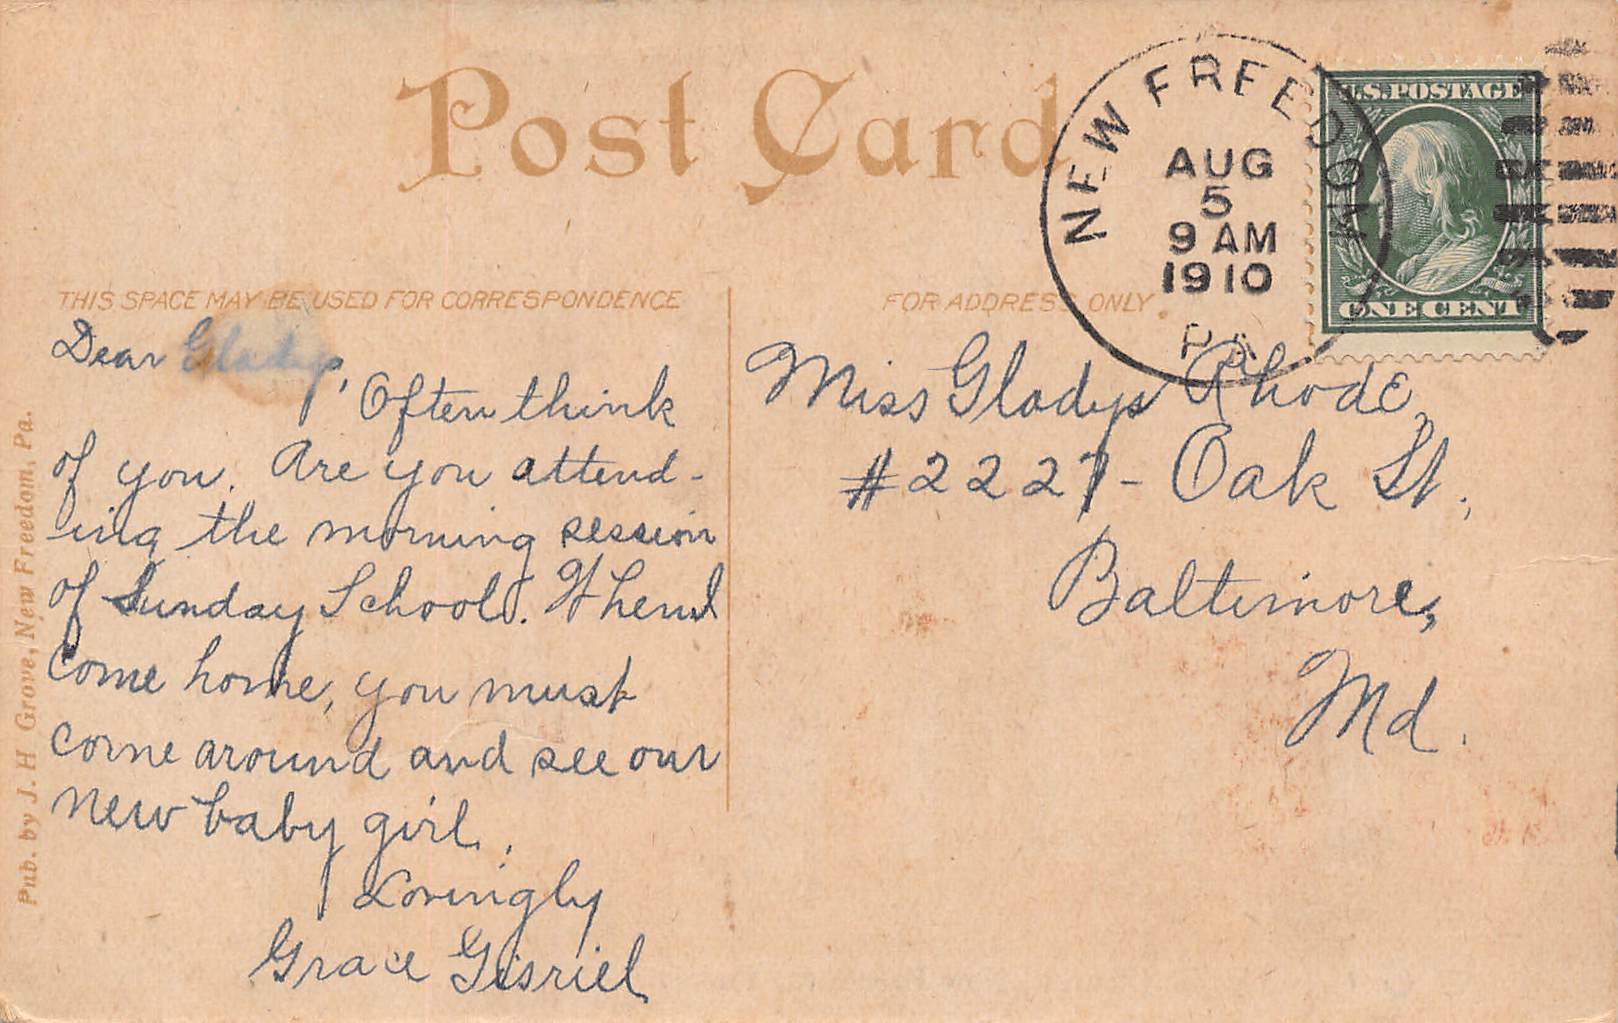 Post Card
NEW FREEDOM
AUG
5
9 AM
1910
PA
U.S.POSTAGE
ONE CENT
THIS SPACE MAY BE USED FOR CORRESPONDENCE
FOR ADDRESS ONLY.
Dear Gladys,
Often think
of you. Are you attend-
ing the morning session
of Sunday School. When I
come home, you must
come around and see our
new baby girl.
Lovingly
Grace Gisriel
Miss Gladys Rhode,
#2227- Oak St.,
Baltimore,
Md.
Pub. by J. H Grove, New Freedom, Pa.